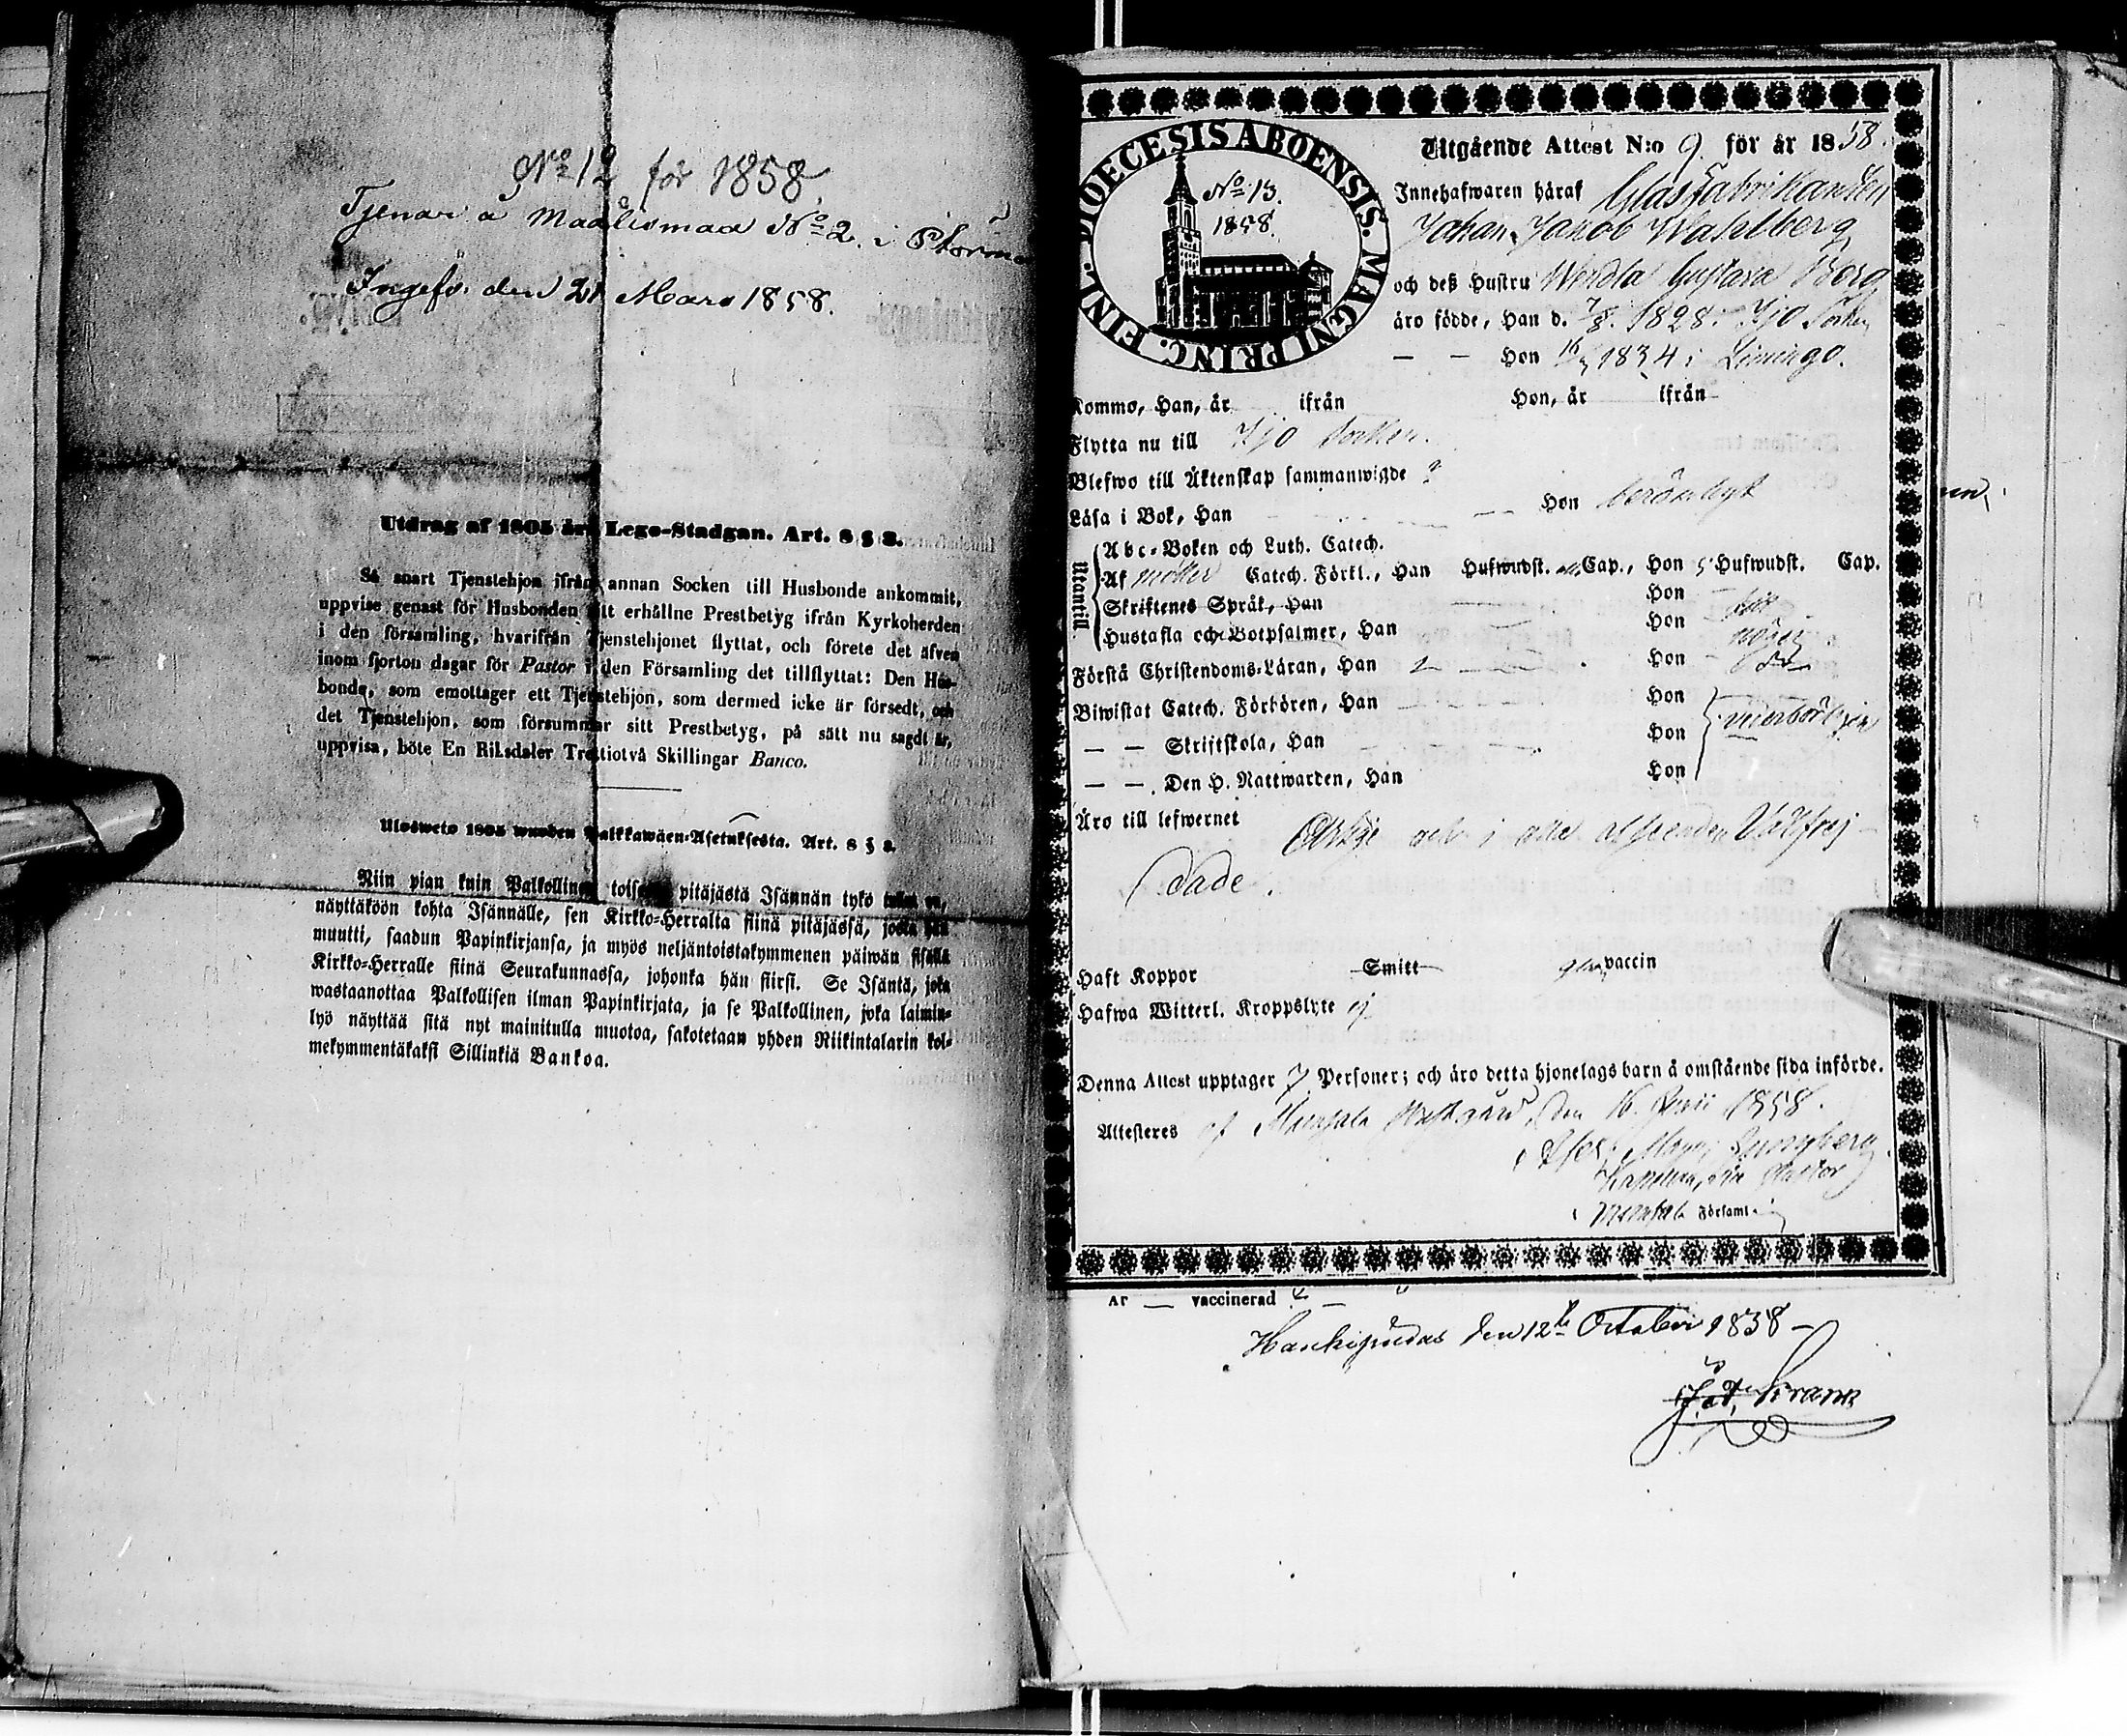 No 12 för 1858.
Tjenar å Maalismaa No 2. i
Ingefs. den 21 Mars 1858.
Utdrag af 1805 års Lego-Stadgan. Art. 8 § 8.
Så snart Tjenstehjon ifrån annan Socken till Husbonde ankommit,
uppvise genast för Husbonden sitt erhållne Prestbetyg ifrån Kyrkoherden
i den församling, hvarifrån Tjenstehjonet flyttat, och förete det äfven
inom fjorton dagar för Pastor i den Församling det tillflyttat: Den Hus-
bonde, som emottager ett Tjenstehjon, som dermed icke är försedt, och
det Tjenstehjon, som försummar sitt Prestbetyg, på sätt nu sagdt är,
uppvisa, böte En Riksdaler Trettiotvå Skillingar Banco.
Ulosweto 1805 wuoden Palkkawäen-Asetuksesta. Art. 8 § 8.
Niin pian kuin Palkollinen toisesta pitäjästä Isännän tykö tullut on,
näyttäköön kohta Isännälle, sen Kirkko-Herralta siinä pitäjässä, josta hän
muutti, saadun Papinkirjansa, ja myös neljäntoistakymmenen päiwän sisällä
Kirkko-Herralle siinä Seurakunnassa, johonka hän siirsi. Se Isäntä, joka
wastaanottaa Palkollisen ilman Papinkirjata, ja se Palkollinen, joka laimin-
lyö näyttää sitä nyt mainitulla muotoa, sakotetaan yhden Riikintalarin kol-
mekymmentäkaksi Sillinkiä Bankoa.
DIOECESIS ABOENSIS. MAGNI PRINC. FINL.
No 13.
1858.
Utgående Attest N:o 9. för år 1858.
Innehafwaren häraf Glasfabrikanten
Johan Jakob Wahlberg
och deß Hustru Wendla Gustava Berg
äro födde, Han d. 7/8. 1828. Ijo Socken
— — Hon 16/ 1834 i Limingo.
Kommo, Han, år ifrån Hon, år ifrån
Flytta nu till Ijo Socken.
Blefwo till Äktenskap sammanwigde ?
Läsa i Bok, Han Hon berömligt
Utantill.
Abc-Boken och Luth. Catech.
Af Möller Catech. Förkl., Han Hufwudst. Cap., Hon 5 Hufwudst. Cap.
Skriftenes Språk, Han Hon
Hustafla och Botpsalmer, Han Hon
Förstå Christendoms-Läran, Han Hon
Biwistat Catech. Förhören, Han Hon
— — Skriftskola, Han Hon
— — Den H. Nattwarden, Han Hon
Äro till lefwernet Ärlige och i alla afseenden Välfrej-
dade.
Haft Koppor Smitt vaccin
Hafwa Witterl. Kroppslyte ej
Denna Attest upptager 7 Personer; och äro detta hjonelags barn å omstående sida införde.
Attesteres af den 16. Juni 1858.
Församl
Är — vaccinerad
Haukipudas den 12te October 1858 —